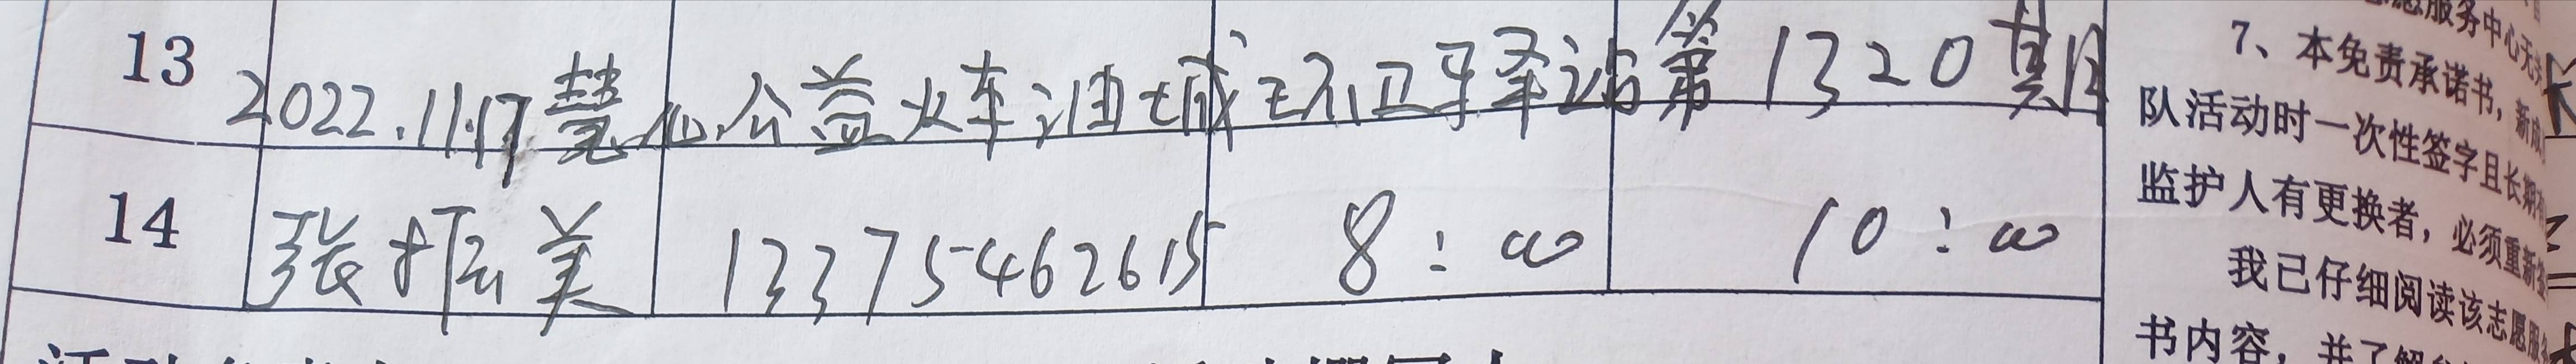 13 2022.11.17慧心公益火车油城环卫驿站第1320期
14 张振美 13375462615 8:00 10:00
服务中心无
7、本免责承诺书，新成
队活动时一次性签字且长期
监护人有更换者，必须重新签
我已仔细阅读该志愿服务
书内容，并了解